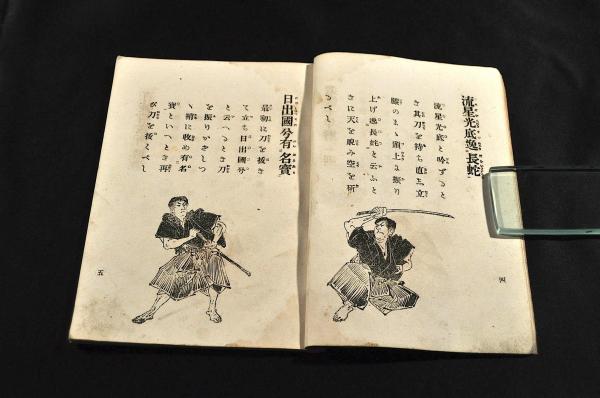 流星光底逸長蛇
流星光底と吟ずると
き其刀を持ち直し立
腰のまゝ頭上に振り
上げ逸長蛇と云ふと
きに天を睨み空を斫
るべし
四
日出國兮有名寶
最初に刀を抜き
て立ち日出國兮
と云へるとき刀
を振りかざしつ
ゝ鞘に收め有名
寶といつとき再
び刀を抜くべし
五